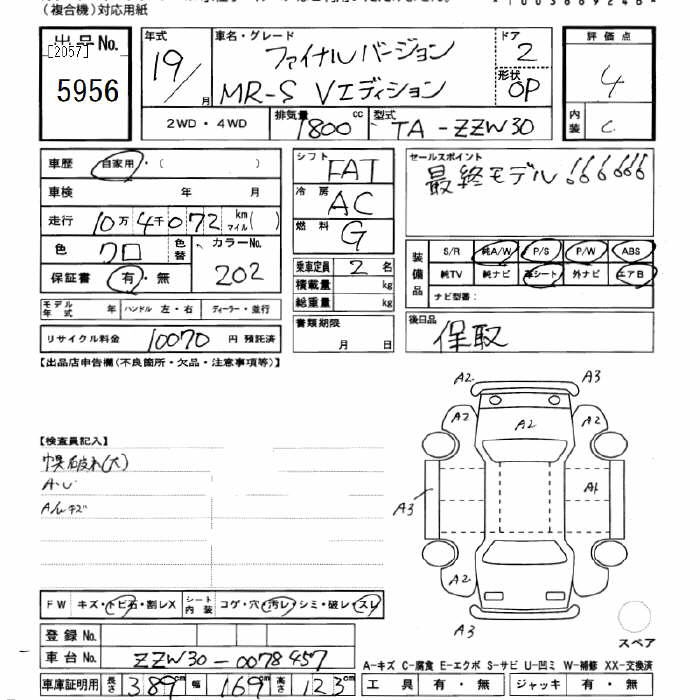 (複合機)対応用紙
出品No.
[2057]
5956
年式
19/
月
車名・グレード
ファイナルバージョン
MR-S Vエディション
ドア
2
形状
OP
評価点
4
内装
C
2WD・4WD
排気量
1800
cc
型式
TA-ZZW30
車歴
自家用・(
)
車検
年
月
走行
10万4千072
km
マイル
( )
色
クロ
色替
カラーNo.
202
保証書
有・無
モデル年式
年
ハンドル
左・右
ディーラー・並行
リサイクル料金
10070
円
預託済
シフト
FAT
冷房
AC
燃料
G
乗車定員
2
名
積載量
kg
総重量
kg
書類期限
月
日
セールスポイント
最終モデル!!!!!!
装備品
S/R
純A/W
P/S
P/W
ABS
純TV
純ナビ
革シート
外ナビ
エアB
ナビ型番:
後日品
保取
【出品店申告欄(不良箇所・欠品・注意事項等)】
【検査員記入】
幌破れ(大)
A・U
FW
キズ・トビ石・割レX
シート内装
コゲ・穴・汚レ・シミ・破レ・スレ
登録No.
車台No.
ZZW30-0078457
車庫証明用
長さ
389
cm
幅
169
cm
高さ
123
cm
A2
A3
A2
A2
A2
A1
A3
A2
A2
A3
スペア
A-キズ C-腐食 E-エクボ S-サビ U-凹ミ W-補修 XX-交換済
工具
有・無
ジャッキ
有・無